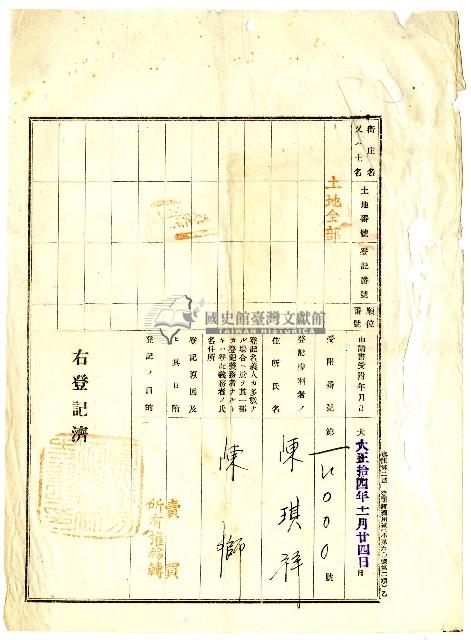 街庄名
又ハ土名
土地番號
登記番號
順位
番號
土地全部
申請書受附年月日
大正拾四年十二月廿四日
受附番號
第一二〇〇〇號
登記權利者ノ
住所氏名
陳琪祥
登記名義人カ多數ナ
ル場合ニ於テ其一部
カ登記義務者ナルト
キハ登記義務者ノ氏
名住所
陳獅
登記原因及
ヒ其日附
賣買
登記ノ目的
所有權移轉
右登記濟
國史館臺灣文獻館
TAIWAN HISTORICA